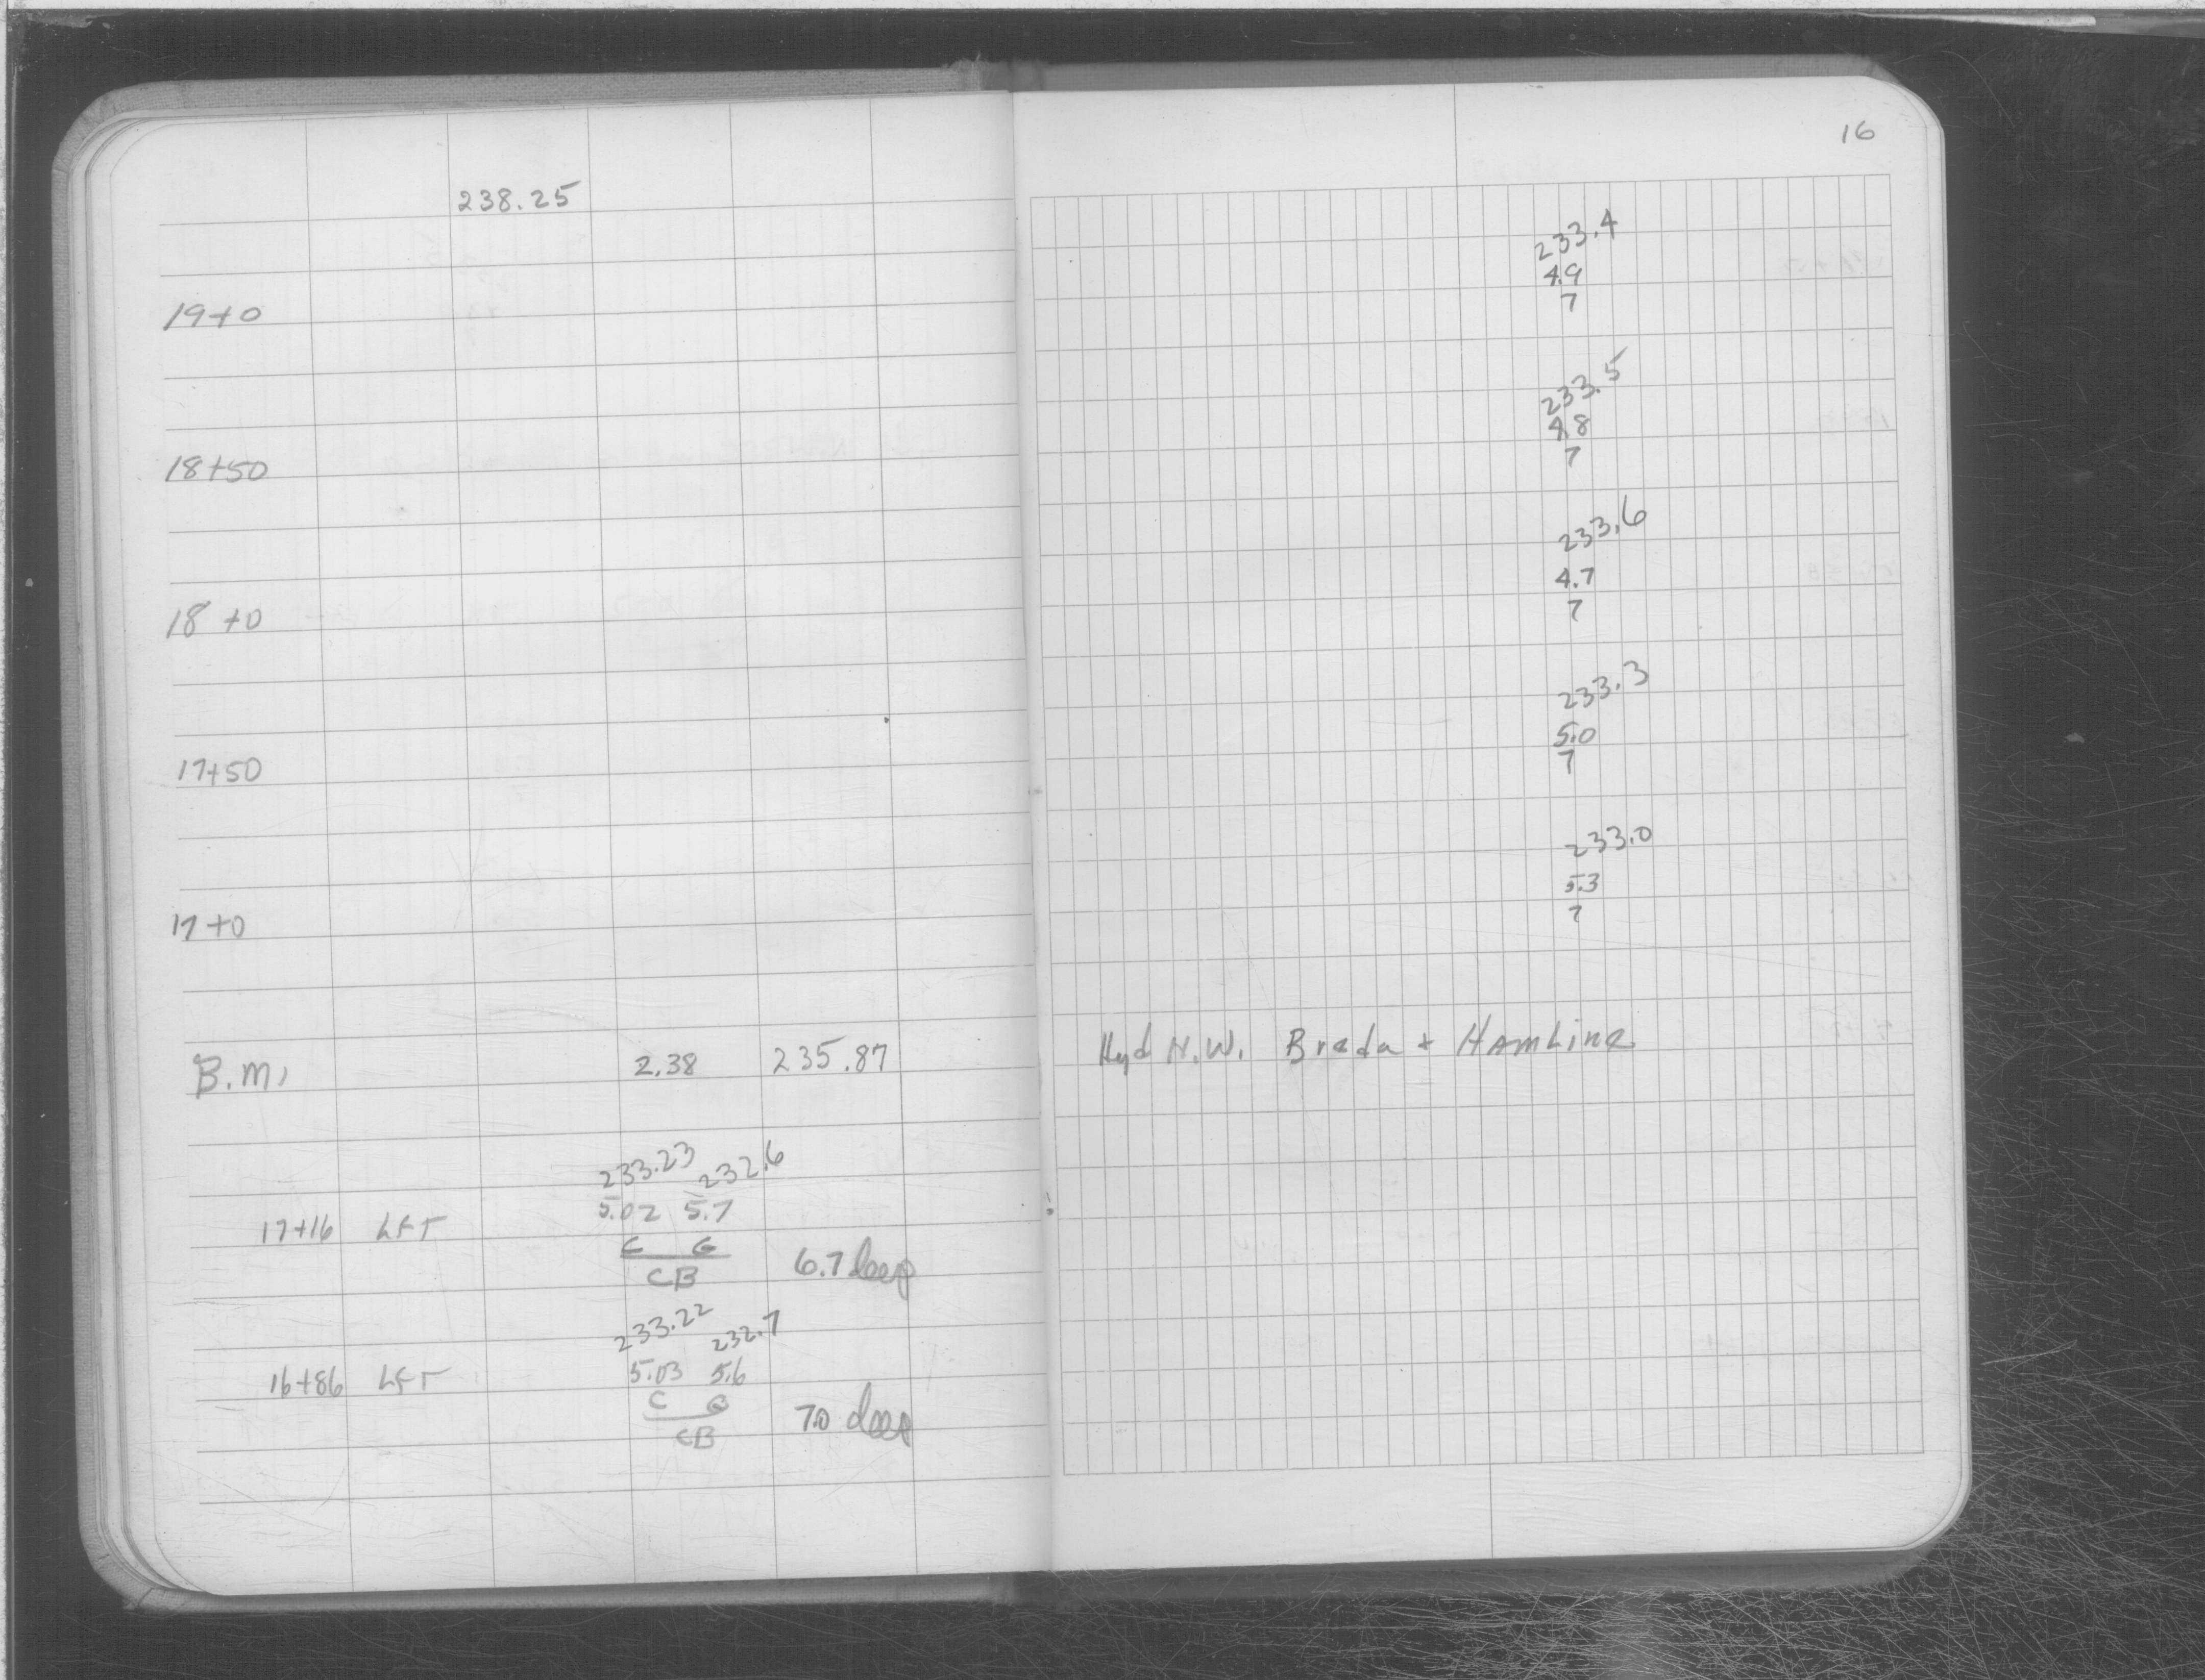 16
238.25
233.4
4.9
19+0 7
233.5
4.8
18+50 7
233.6
4.7
18+0 7
233.3
5.0
17+50 7
233.0
5.3
17+0 7
B.M. 2.38 235.87 Hyd N.W. Breda + Hamline
233.23 232.6
17+16 LFT 5.02 5.7
C G
CB 6.7 deep
233.22 232.7
16+86 LFT 5.03 5.6
C G
CB 7.0 deep